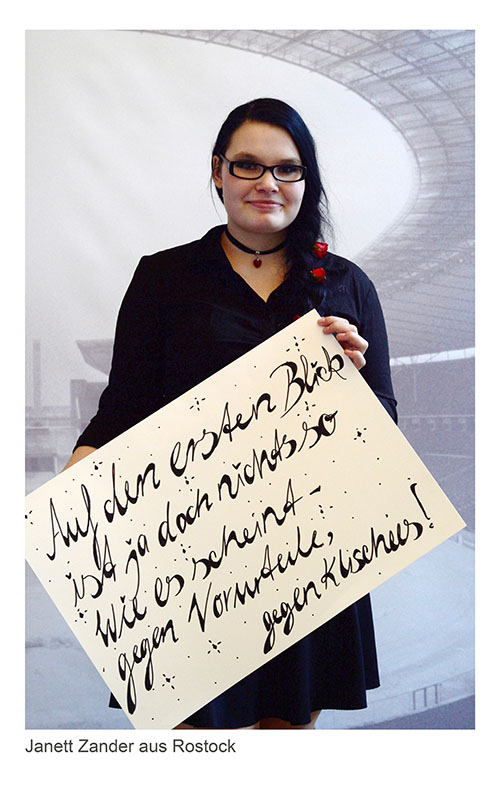 Auf den ersten Blick
ist ja doch nichts so
wie es scheint -
gegen Vorurteile,
gegen Klischees!
Janett Zander aus Rostock